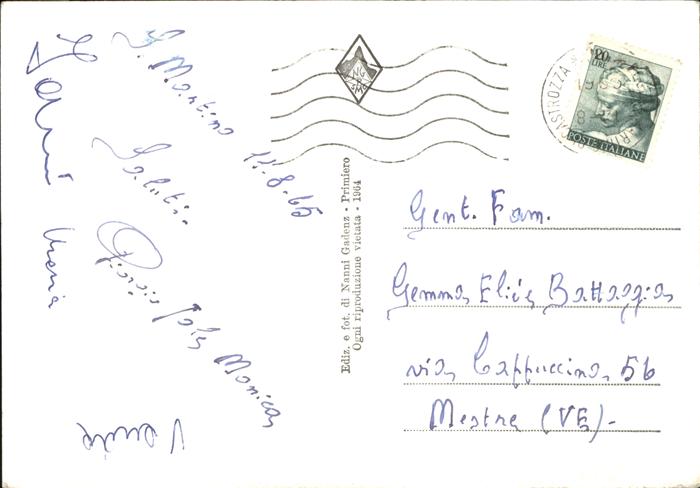 S. Martino 11.8.65
Saluti
Giorgio Iole Monica
Maria
20
LIRE
POSTE ITALIANE
CASTROZZA
Ediz. e fot. di Nanni Gadenz - Primiero
Ogni riproduzione vietata - 1964
Gent. Fam.
Gemma Elio Battaggia
via Cappuccina 56
Mestre (VE).